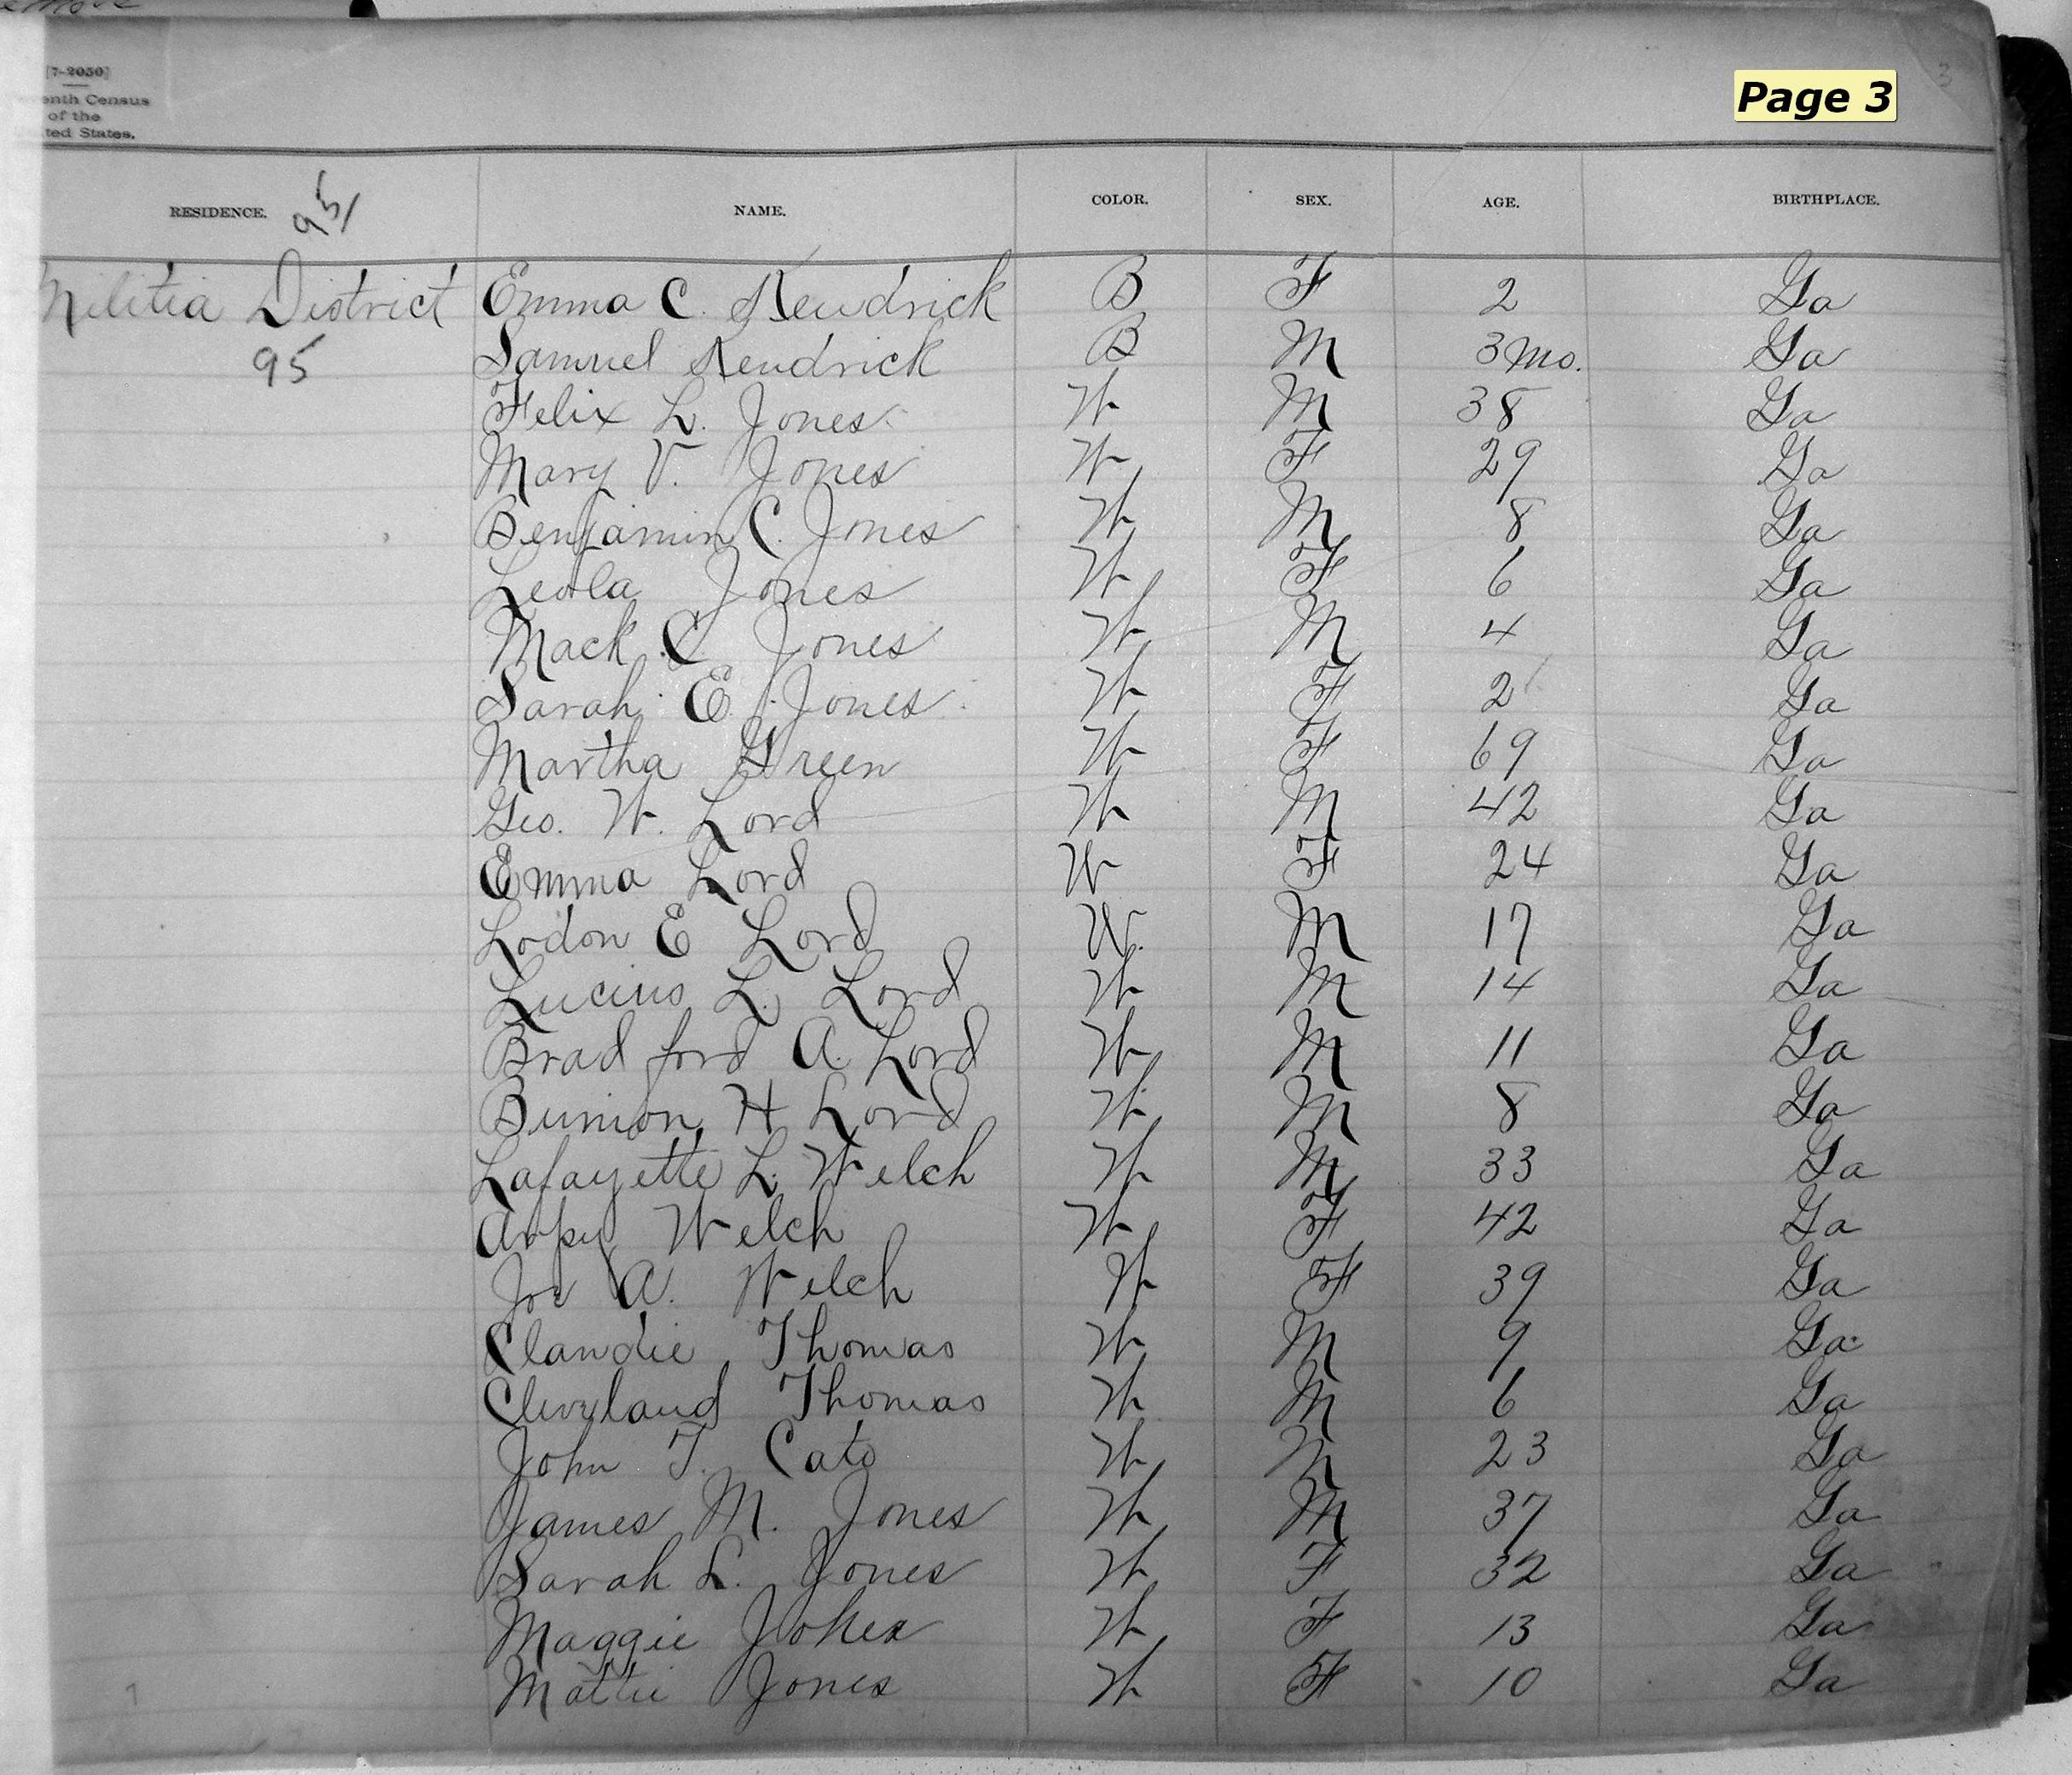 [7-2050]
enth Census
of the
ted States.
Page 3
3
RESIDENCE. 95 NAME. COLOR. SEX. AGE. BIRTHPLACE.
Militia District Emma C. Kendrick B F 2 Ga
95 Samuel Kendrick B M 3 mo. Ga
Felix L. Jones W M 38 Ga
Mary V. Jones W F 29 Ga
Benjamin C. Jones W M 8 Ga
Leola Jones W F 6 Ga
Mack C. Jones W M 4 Ga
Sarah E. Jones W F 2 Ga
Martha Green W F 69 Ga
Geo. W. Lord W M 42 Ga
Emma Lord W F 24 Ga
Lodon E Lord W. M 17 Ga
Lucius L. Lord W M 14 Ga
Bradford A. Lord W M 11 Ga
Bunion H Lord W M 8 Ga
Lafayette L. Welch W M 33 Ga
Welch W F 42 Ga
Joe A. Welch W F 39 Ga
Claudie Thomas W M 9 Ga
Cleveland Thomas W M 6 Ga
John T. Cato W M 23 Ga
James M. Jones W M 37 Ga
Sarah L. Jones W F 32 Ga
Maggie Jones W F 13 Ga
Mattie Jones W F 10 Ga